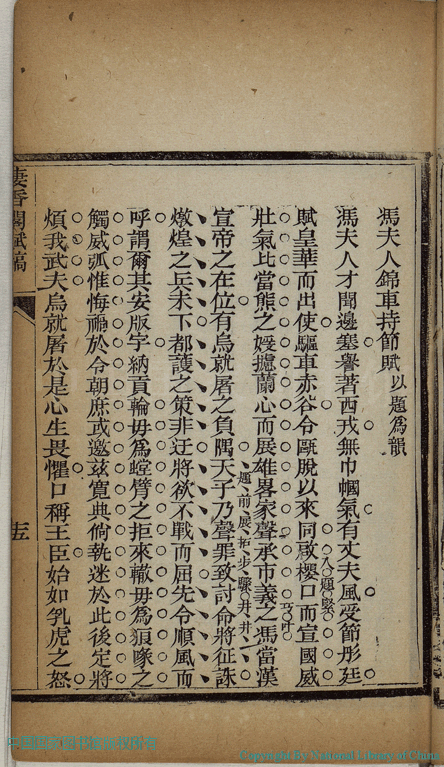 馮夫人錦車持節賦以題為韻
馮夫人才聞邊塞譽著西戎無巾幗氣有丈夫風受節彤廷
賦皇華而出使驅車赤谷令甌脫以來同啟櫻口而宣國威
入題緊
壯氣比當熊之媛攄蘭心而展雄畧家聲承市義之馮當漢
巧叶
宣帝之在位有烏就屠之負隅天子乃聲罪致討命將征誅
題前展拓步驟井井
燉煌之兵未下都護之策非迂將欲不戰而屈先令順風而
呼謂爾其安版宇納貢輸毋為螳臂之拒來轍毋為狼喙之
觸威弧惟悔禍於今朝庶或邀茲寬典倘執迷於此後定將
煩我武夫烏就屠於是心生畏懼口稱王臣始如乳虎之怒
棲香閣賦稿
十五
Copyright By National Library of China